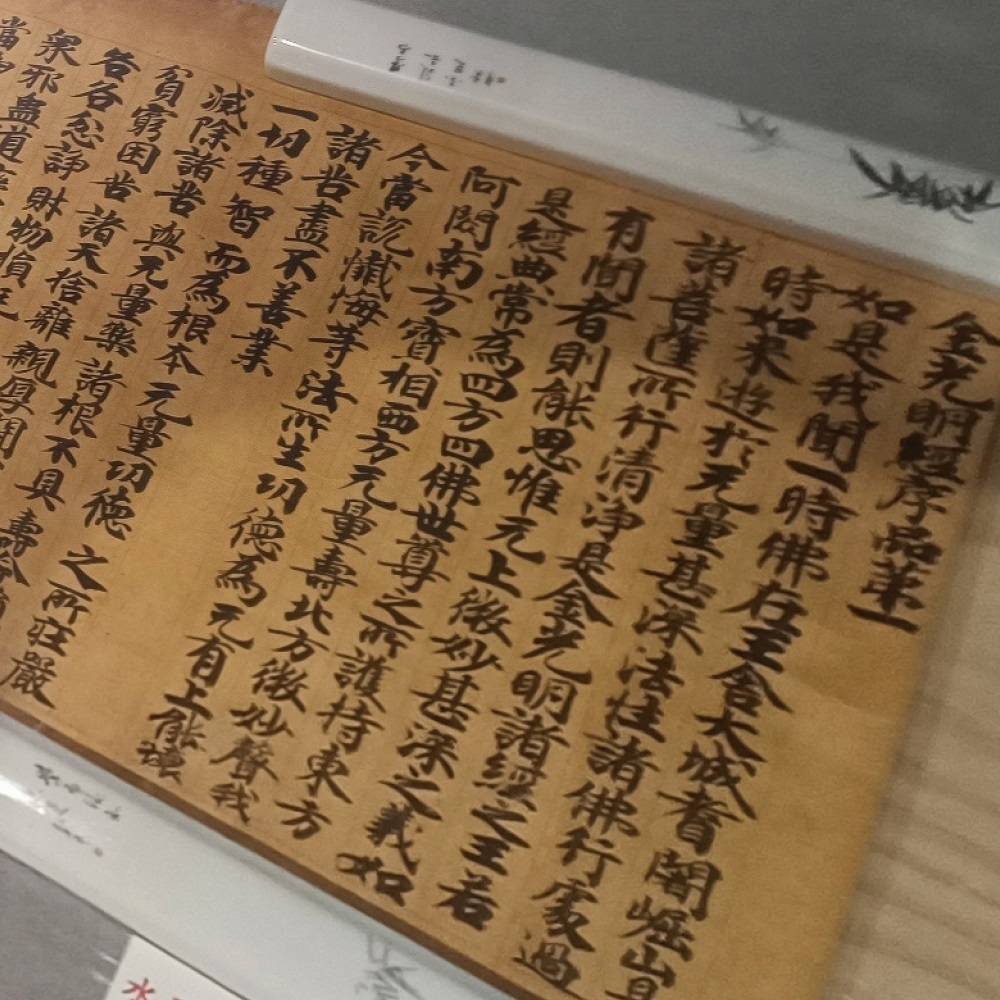 金光明經序品第一
如是我聞一時佛在王舍大城耆闍崛山是
時如來遊於无量甚深法性諸佛行處過
諸菩薩所行清淨是金光明諸經之王若
有聞者則能思惟无上微妙甚深之義如
是經典常為四方四佛世尊之所護持東方
阿閦南方寶相西方无量壽北方微妙聲我
今當說懺悔等法所生功德為无有上能壞
諸苦盡不善業
一切種智而為根本无量功德之所莊嚴
滅除諸苦與无量樂諸根不具壽命
貧窮困苦諸天捨離親厚鬪
各各忿諍財物損耗
眾邪蠱道
水